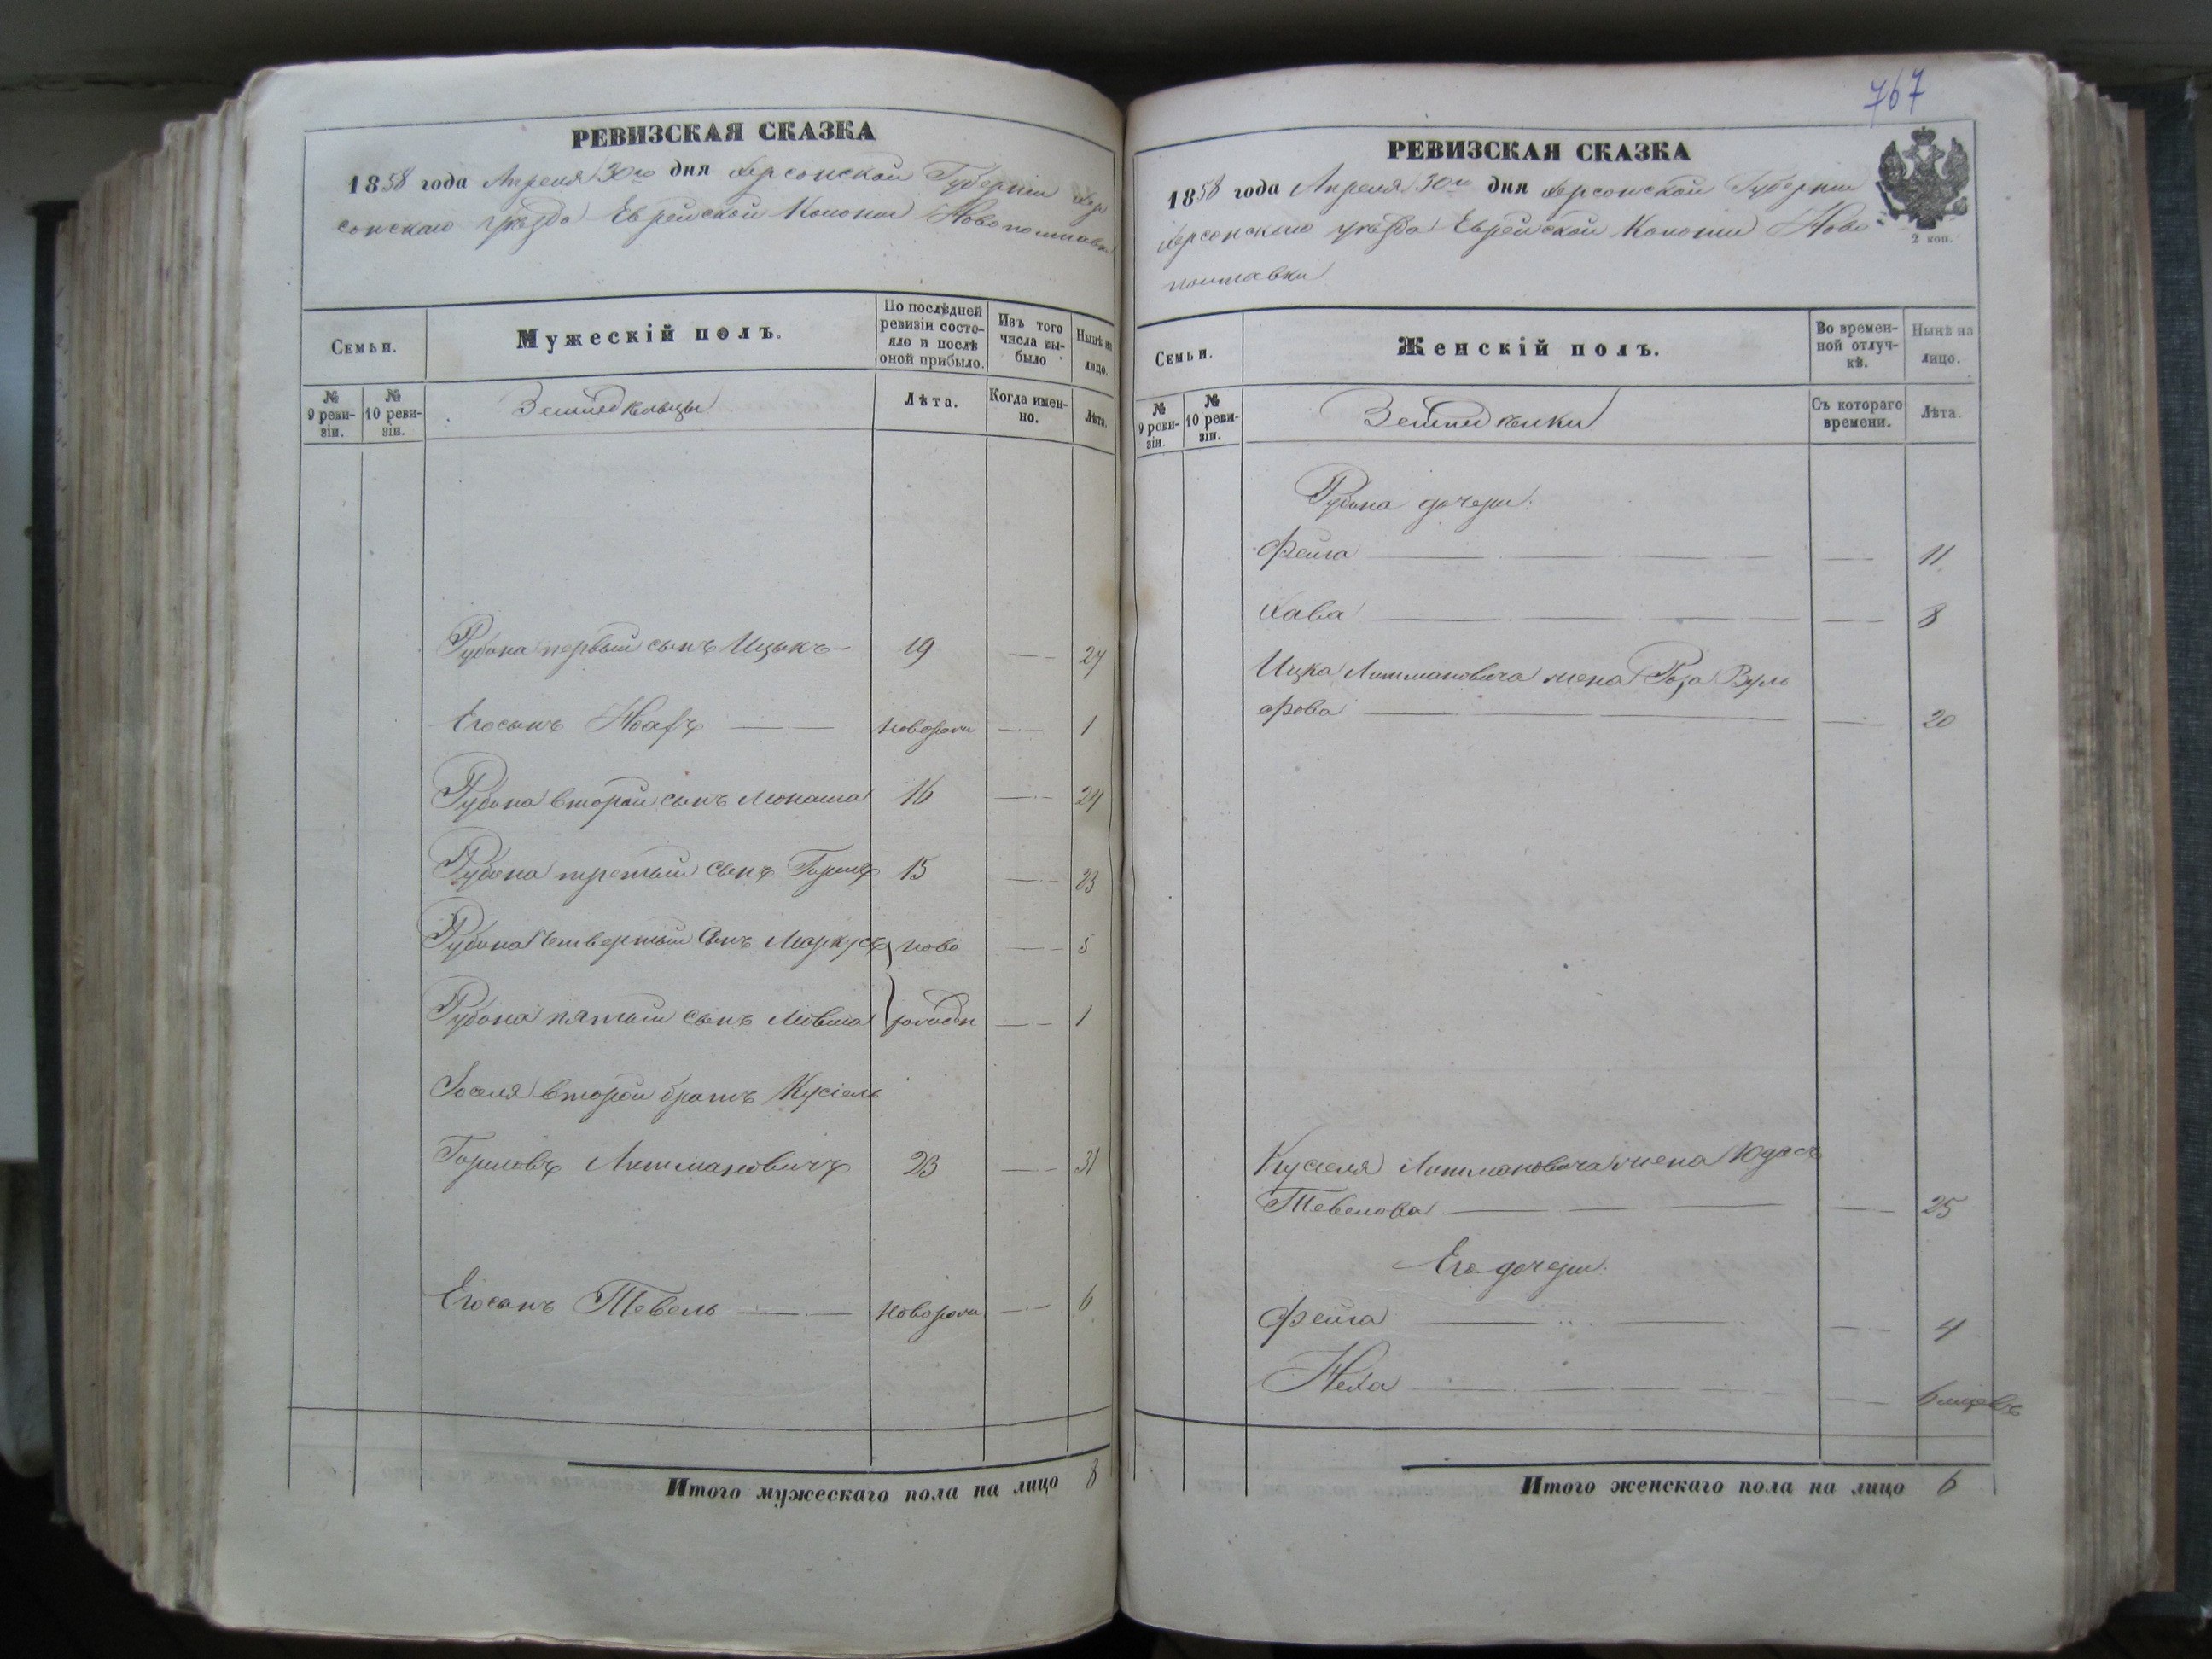 РЕВИЗСКАЯ СКАЗКА
1858 года Апреля 30го дня Херсонской Губернии Хер
сонскаго уѣзда Еврейской Колонии Новополтавки
Семьи.
Мужескій полъ.
По послѣдней ревизіи состояло и послѣ оной прибыло.
Изъ того числа выбыло
Нынѣ на лицо.
№ 9 ревизіи.
№ 10 ревизіи.
Земледѣльцы
Лѣта.
Когда именно.
Лѣта.
Рубина первый сынъ Ицыкъ 19 27
Его сынъ новорож 1
Рубина второй сынъ Монаша 16 24
Рубина третьий сынъ 15 23
Рубина Четвертый Сынъ Маркусъ ново 5
Рубина пятый сынъ Мовша рожден 1
Іоселя второй братъ Кусіель
Литмановичъ 23 31
Его сынъ Тевель новорож 6
Итого мужескаго пола на лицо 8
767
РЕВИЗСКАЯ СКАЗКА
1858 года Апреля 30го дня Херсонской Губернии
Херсонскаго уѣзда Еврейской Колонии Ново-
полтавки
2 коп.
Семьи.
Женскій полъ.
Во временной отлучкѣ.
Нынѣ на лицо.
№ 9 ревизіи.
№ 10 ревизіи.
Земледѣлки
Съ котораго времени.
Лѣта.
Рубина дочери:
Фейга 11
Хава 8
Ицка Литмановича жена Вуль
фова 20
Кусіеля Литмановича жена Юдасъ
Тевелова 25
Его дочери:
Фейга 4
Неха 6 месецовъ
Итого женскаго пола на лицо 6